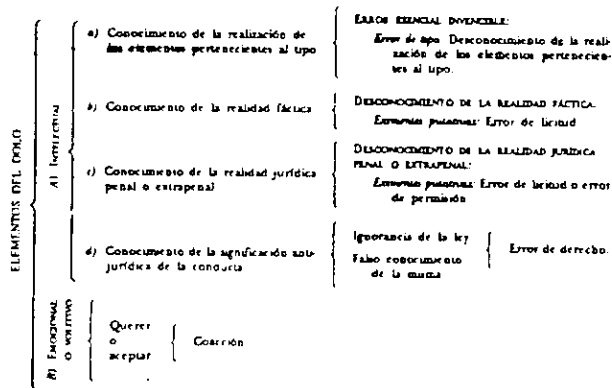 ELEMENTOS DEL DOLO
A) INTELECTUAL
a) Conocimiento de la realización de
los elementos pertenecientes al tipo
ERROR ESENCIAL INVENCIBLE:
Error de tipo. Desconocimiento de la reali-
zación de los elementos pertenecien-
tes al tipo.
b) Conocimiento de la realidad fáctica
DESCONOCIMIENTO DE LA REALIDAD FÁCTICA.
Eximentes putativas: Error de licitud
c) Conocimiento de la realidad jurídica
penal o extrapenal
DESCONOCIMIENTO DE LA REALIDAD JURÍDICA
PENAL O EXTRAPENAL:
Eximentes putativas: Error de licitud o error
de permisión
d) Conocimiento de la significación anti-
jurídica de la conducta
Ignorancia de la ley
Falso conocimiento
de la misma
Error de derecho.
B) EMOCIONAL
O VOLITIVO
Querer
o
aceptar
Coacción